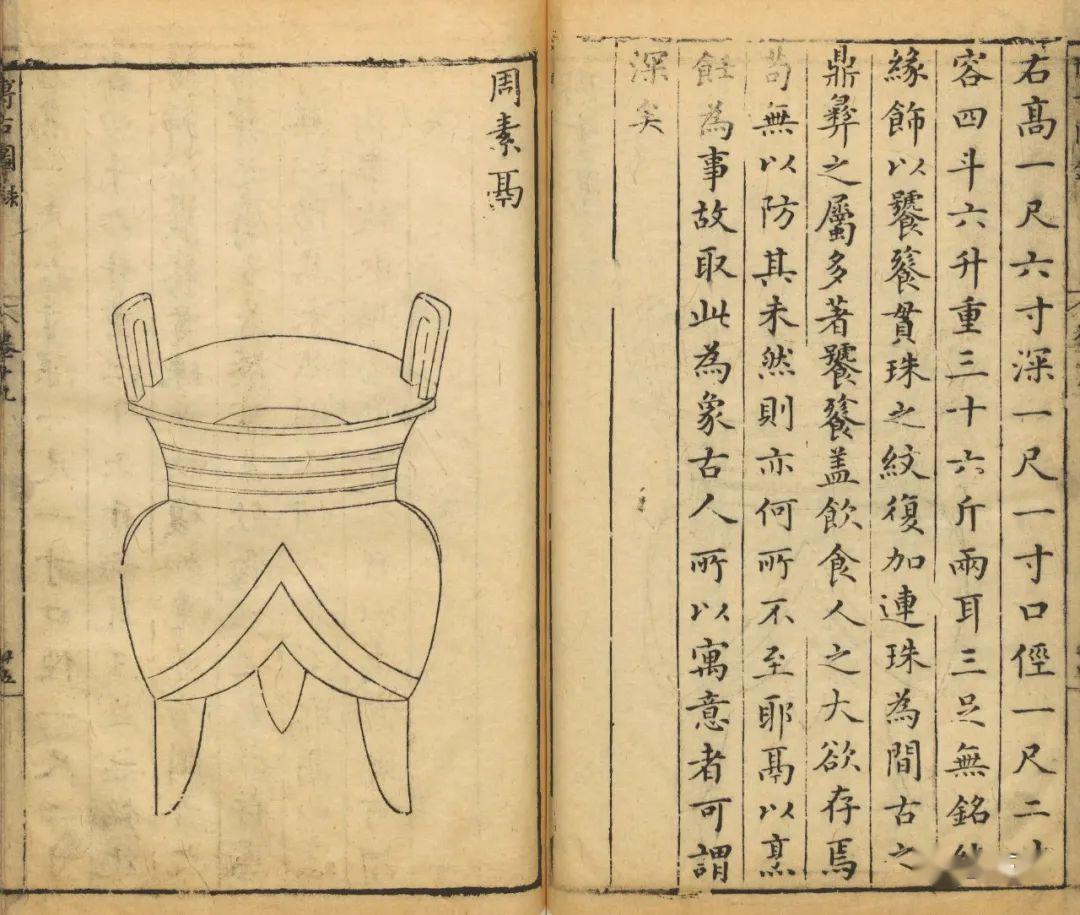 右高一尺六寸深一尺一寸口俓一尺二寸
容四斗六升重三十六斤兩耳三足無銘
緣飾以饕餮貫珠之紋復加連珠為間古之
鼎彝之屬多著饕餮盖飲食人之大欲存焉
苟無以防其未然則亦何所不至耶鬲以烹
飪為事故取此為象古人所以寓意者可謂
深矣
周素鬲
博古圖錄
卷十九